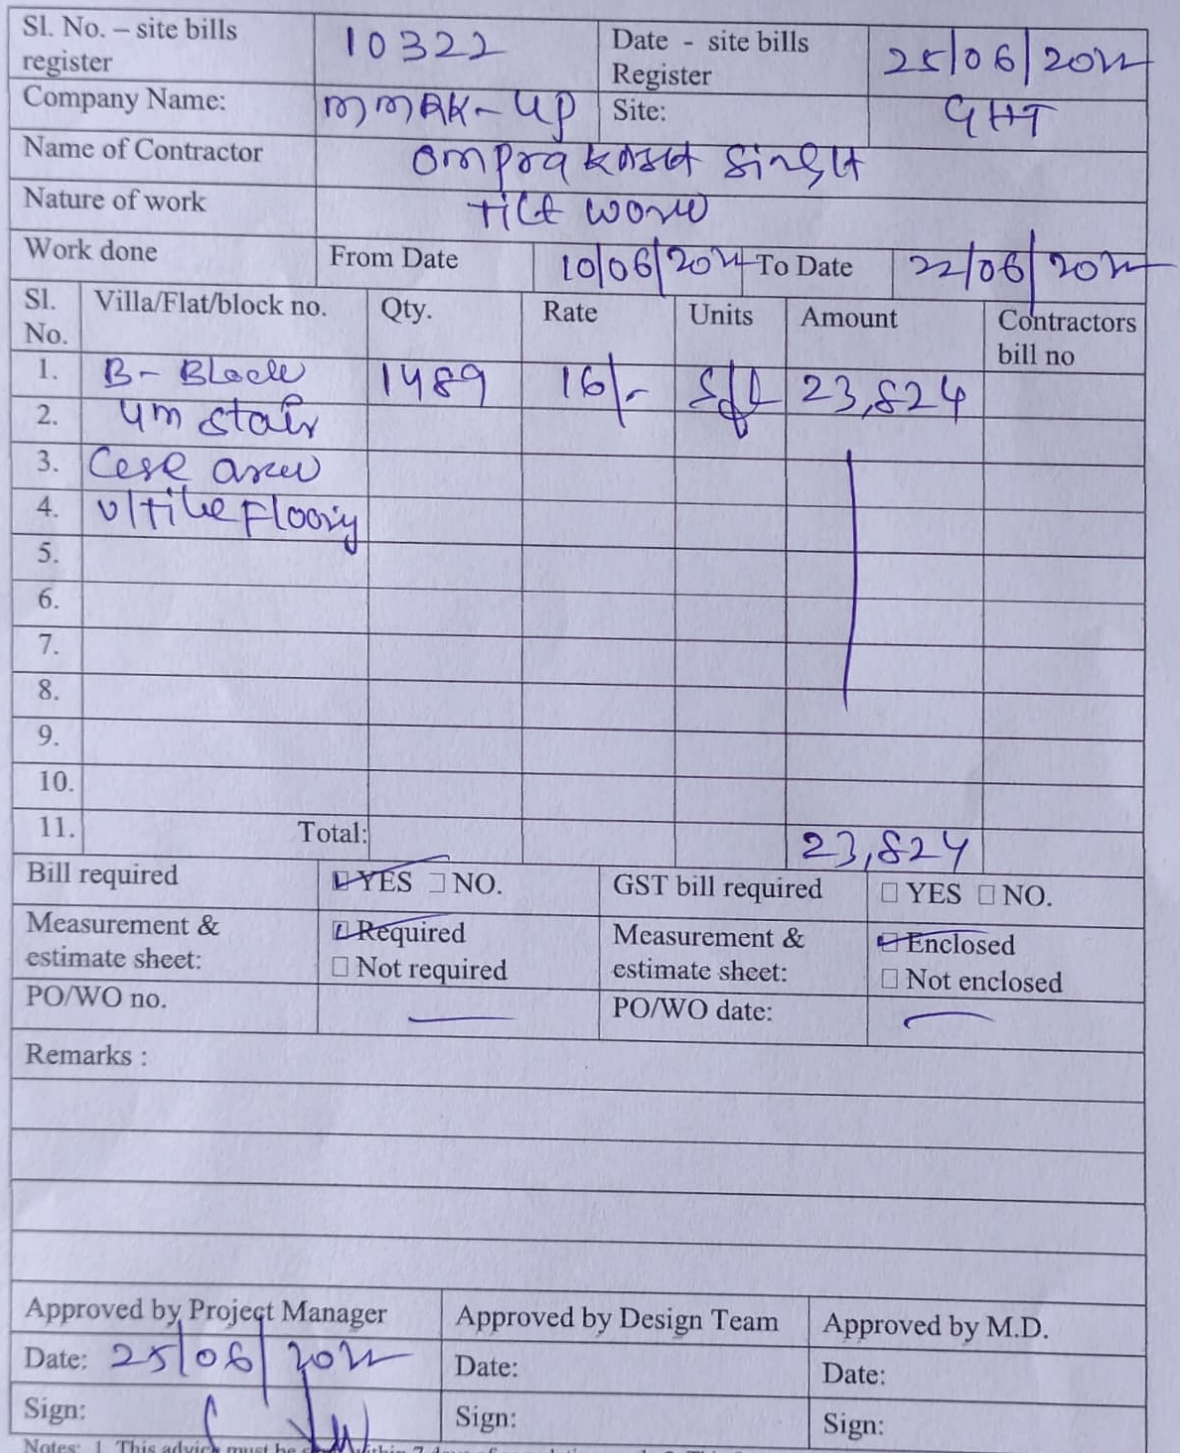 Sl. No. – site bills register 10322 Date - site bills Register 25/06/2022
Company Name: MMRK-UP Site: GHT
Name of Contractor omprakash singh
Nature of work tile work
Work done From Date 10/06/2022 To Date 22/06/2022
Sl. No. Villa/Flat/block no. Qty. Rate Units Amount Contractors bill no
1. B- Block 1489 16/- Sft 23,824
2. stair
3. Cese area
4. Flooring
5.
6.
7.
8.
9.
10.
11. Total: 23,824
Bill required YES NO. GST bill required YES NO.
Measurement & estimate sheet: Required Measurement & estimate sheet: Enclosed
Not required Not enclosed
PO/WO no. PO/WO date:
Remarks :
Approved by Project Manager Approved by Design Team Approved by M.D.
Date: 25/06/2022 Date: Date:
Sign: Sign: Sign:
Notes: 1. This advice must be